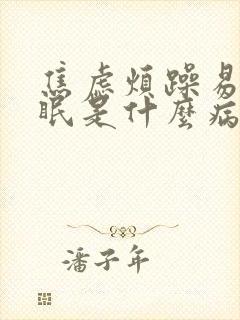 焦虑煩躁易
眠是什麼病
潘子年